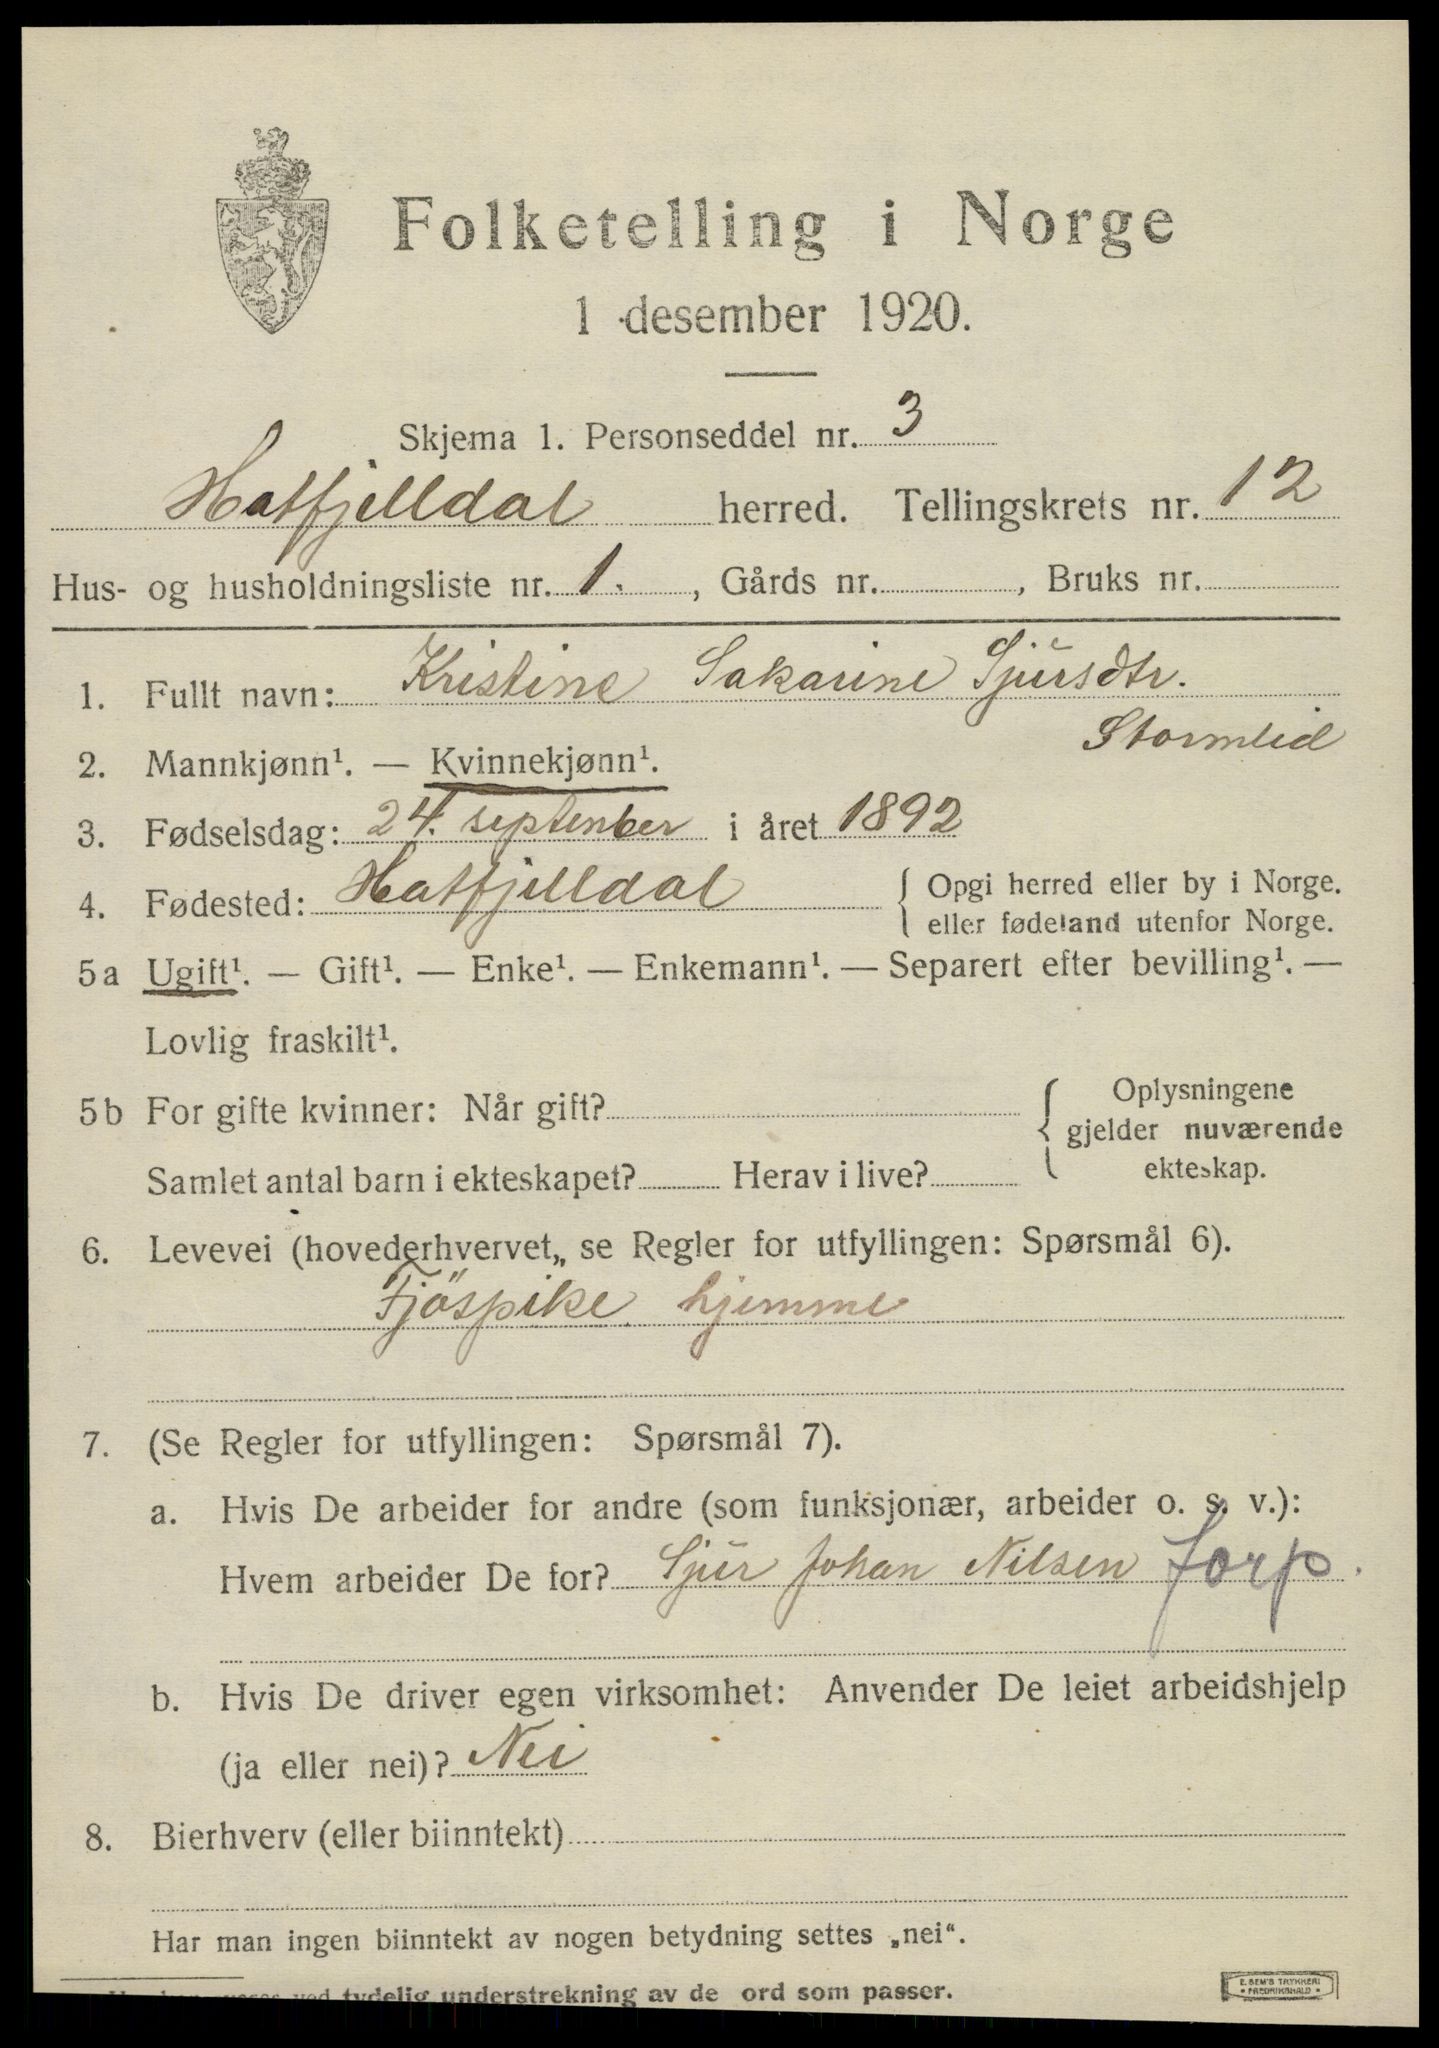 Folketelling i Norge
1 desember 1920.
Skjema 1. Personseddel nr. 3
Hatfjelldal herred. Tellingskrets nr. 12
Hus- og husholdningsliste nr. 1. , Gårds nr. , Bruks nr.
1. Fullt navn: Kristine Sakarine Sjursdtr.
Stormlid
2. Mannkjønn¹. — Kvinnekjønn¹.
3. Fødselsdag: 24. september i året 1892
4. Fødested: Hatfjelldal { Opgi herred eller by i Norge.
eller fødeland utenfor Norge.
5a Ugift¹. — Gift¹. — Enke¹. — Enkemann¹. — Separert efter bevilling¹. —
Lovlig fraskilt¹.
5b For gifte kvinner: Når gift? { Oplysningene
gjelder nuværende
Samlet antal barn i ekteskapet? Herav i live? ekteskap.
6. Levevei (hovederhvervet„ se Regler for utfyllingen: Spørsmål 6).
Fjøspike hjemme
7. (Se Regler for utfyllingen: Spørsmål 7).
a. Hvis De arbeider for andre (som funksjonær, arbeider o. s. v.):
Hvem arbeider De for? Sjur Johan Nilsen forp.
b. Hvis De driver egen virksomhet: Anvender De leiet arbeidshjelp
(ja eller nei)? Nei
8. Bierhverv (eller biinntekt)
Har man ingen biinntekt av nogen betydning settes „nei“.
ved tydelig understrekning av de ord som passer.
E. SEM'S TRYKKERI
• FREDRIKSHALD •